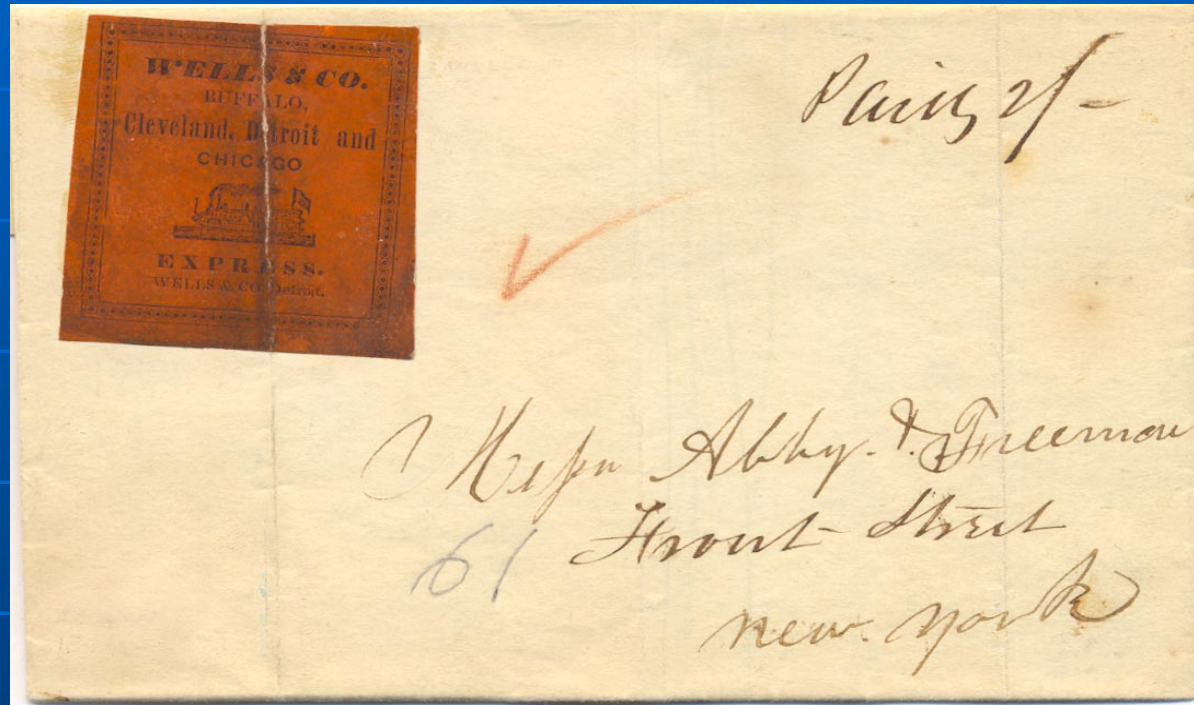 WELLS & CO.
BUFFALO,
Cleveland, Detroit and
CHICAGO
EXPRESS.
WELLS & CO. Detroit.
Paid 2/-
Messrs Abby & Freeman
Front Street
61
New York